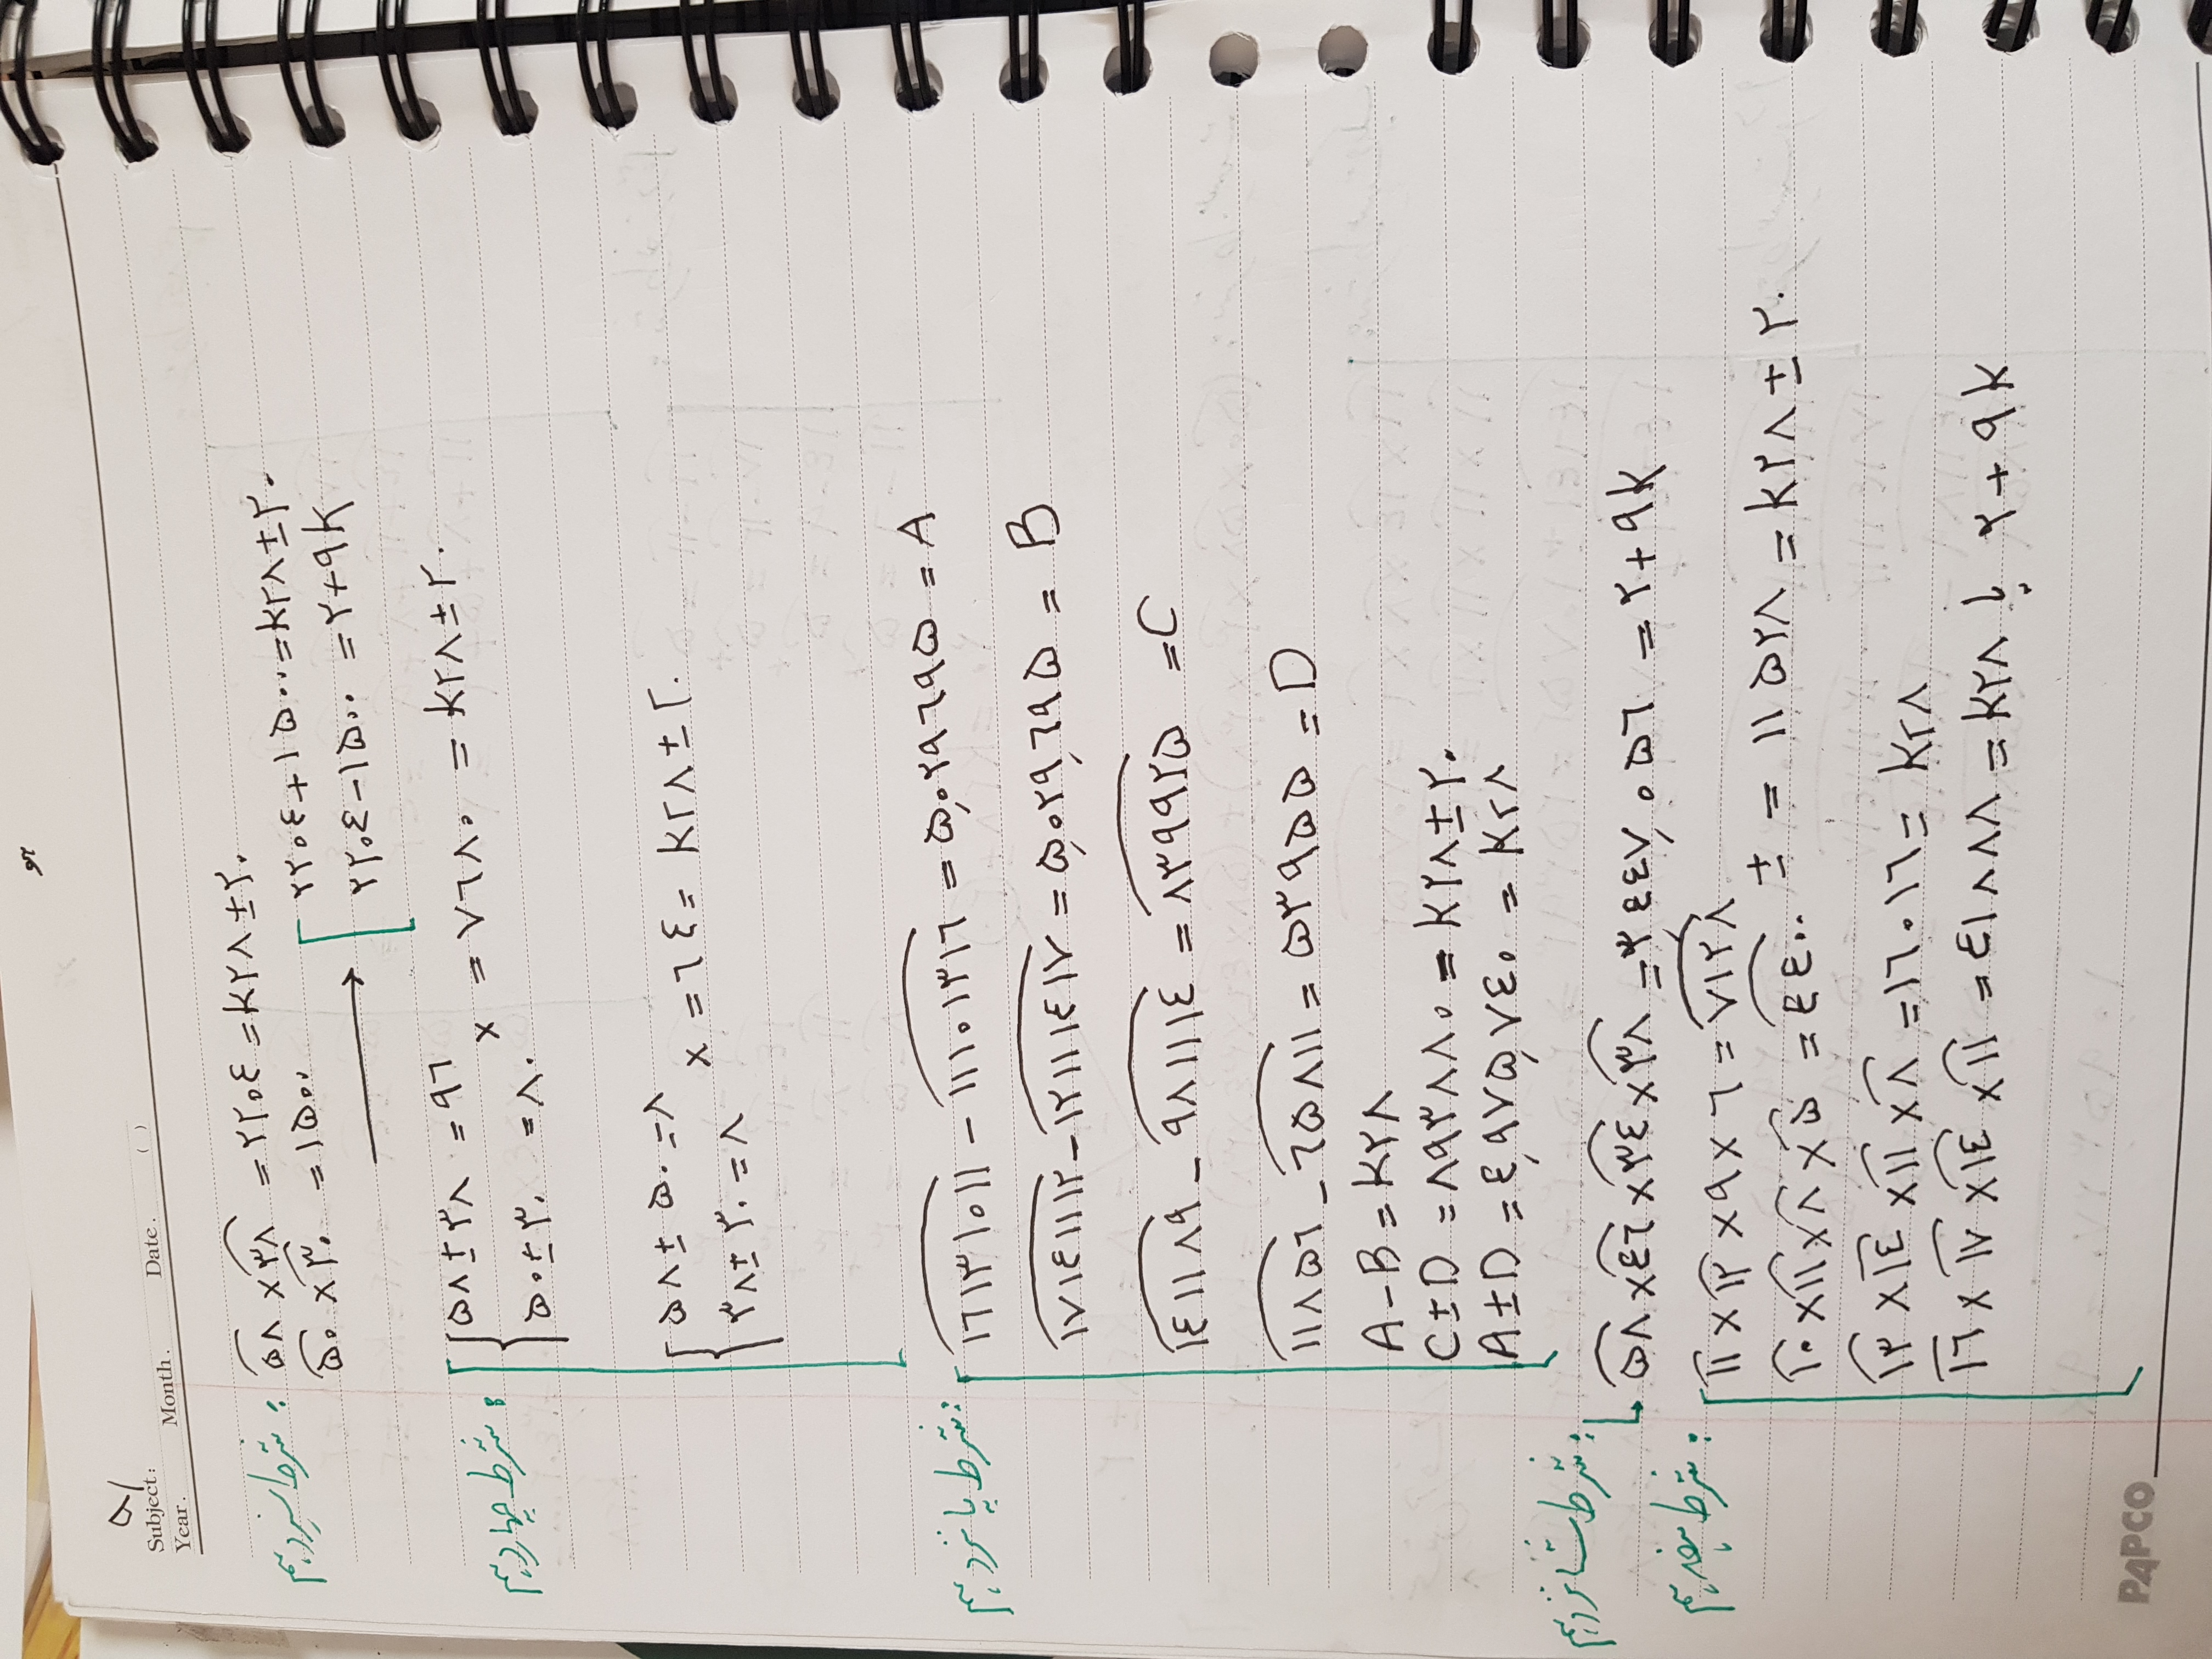 ۹۱
Subject:
Year. Month. Date. ( )
شرط سیزدهم : ۵۸ × ۳۸ = ۲۲۰٤ = K۲۸ ± ۲۰
۵۰ × ۳۰ = ۱۵۰۰ → ۲۲۰٤ + ۱۵۰۰ = K۲۸ ± ۲۰
۲۲۰٤ − ۱۵۰۰ = ۲ + ۹K
شرط چهاردهم : ۵۸ ± ۳۸ = ۹٦
۵۰ ± ۳۰ = ۸۰ × = ۷٦۸۰ = K۲۸ ± ۲۰
۵۸ ± ۵۰ = ۸
۳۸ ± ۳۰ = ۸ × = ٦٤ = K۲۸ ± ۲۰
شرط پانزدهم : ۱٦۱۳۱۰۱۱ − ۱۱۱۰۱۳۱٦ = ۵,۰۲۹٦۹۵ = A
۱۷۱٤۱۱۱۲ − ۱۲۱۱۱٤۱۷ = ۵,۰۲۹,٦۹۵ = B
۱٤۱۱۸۹ − ۹۸۱۱۱٤ = ۸۳۹۹۲۵ = C
۱۱۸۵٦ − ٦۵۸۱۱ = ۵۳۹۵۵ = D
A − B = K۲۸
C ± D = ۸۹۳۸۸۰ = K۲۸ ± ۲۰
A ± D = ٤,۹۷۵,۷٤۰ = K۲۸
شرط شانزدهم :
۵۸ × ٤٦ × ۳٤ × ۳۸ = ۳,٤٤۷,۰۵٦ = ۲ + ۹K
شرط هفدهم : ۱۱ × ۱۲ × ۹ × ٦ = ۷۱۲۸
۱۰ × ۱۱ × ۸ × ۵ = ٤٤۰۰ ± = ۱۱۵۲۸ = K۲۸ ± ۲۰
۱۳ × ۱٤ × ۱۱ × ۸ = ۱٦۰۱٦ = K۲۸
۱٦ × ۱۷ × ۱٤ × ۱۱ = ٤۱۸۸۸ = K۲۸ یا ۲ + ۹K
PAPCO